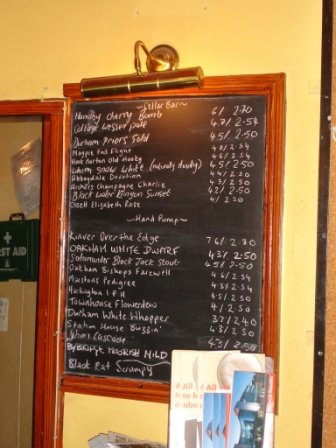 ~Cellar Bar~
Handley Cherry Bomb 6/ 2.70
College Wesser pale 4.7/ 2.54
Durham Priors Fold 4.5/ 2.50
Magpie Full Flight 4.8/ 2.54
Hook Norton Old Hooky 4.6/ 2.54
Whim Snow White (naturally cloudy) 4.5/ 2.50
Abbeydale Devotion 4.4/ 2.50
Archers Champagne Charlie 4.3/ 2.50
Black Water Kenyan Sunset 4.2/ 2.50
Ossett Elizabeth Rose 4/ 2.30
~Hand Pump~
Kinver Over the Edge 7.6/ 2.80
OAKHAM WHITE DWARF 4.3/ 2.50
Salamander Black Jack Stout 4.5/ 2.50
Oakham Bishops Farewell 4.6/ 2.54
Marstons Pedigree 4.5/ 2.54
I P A 4.5/ 2.50
Townhouse Flowerdew 4/ 2.50
Durham White Whopper 3.7/ 2.40
Station House Buzzin' 4.3/ 2.50
Cascade 4.3/ 2.50
NOURISH MILD
Black Rat Scrumpy
RST AID
A All